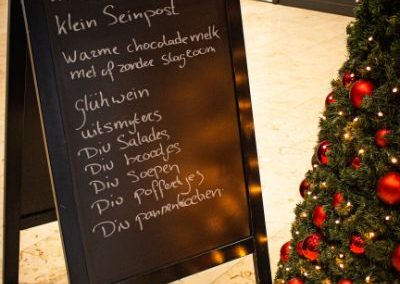 klein Seinpost
Warme chocolademelk
met of zonder slagroom
glühwein
uitsmijters
Div Salades
Div broodjes
Div Soepen
Div poffertjes
Div pannenkoeken.